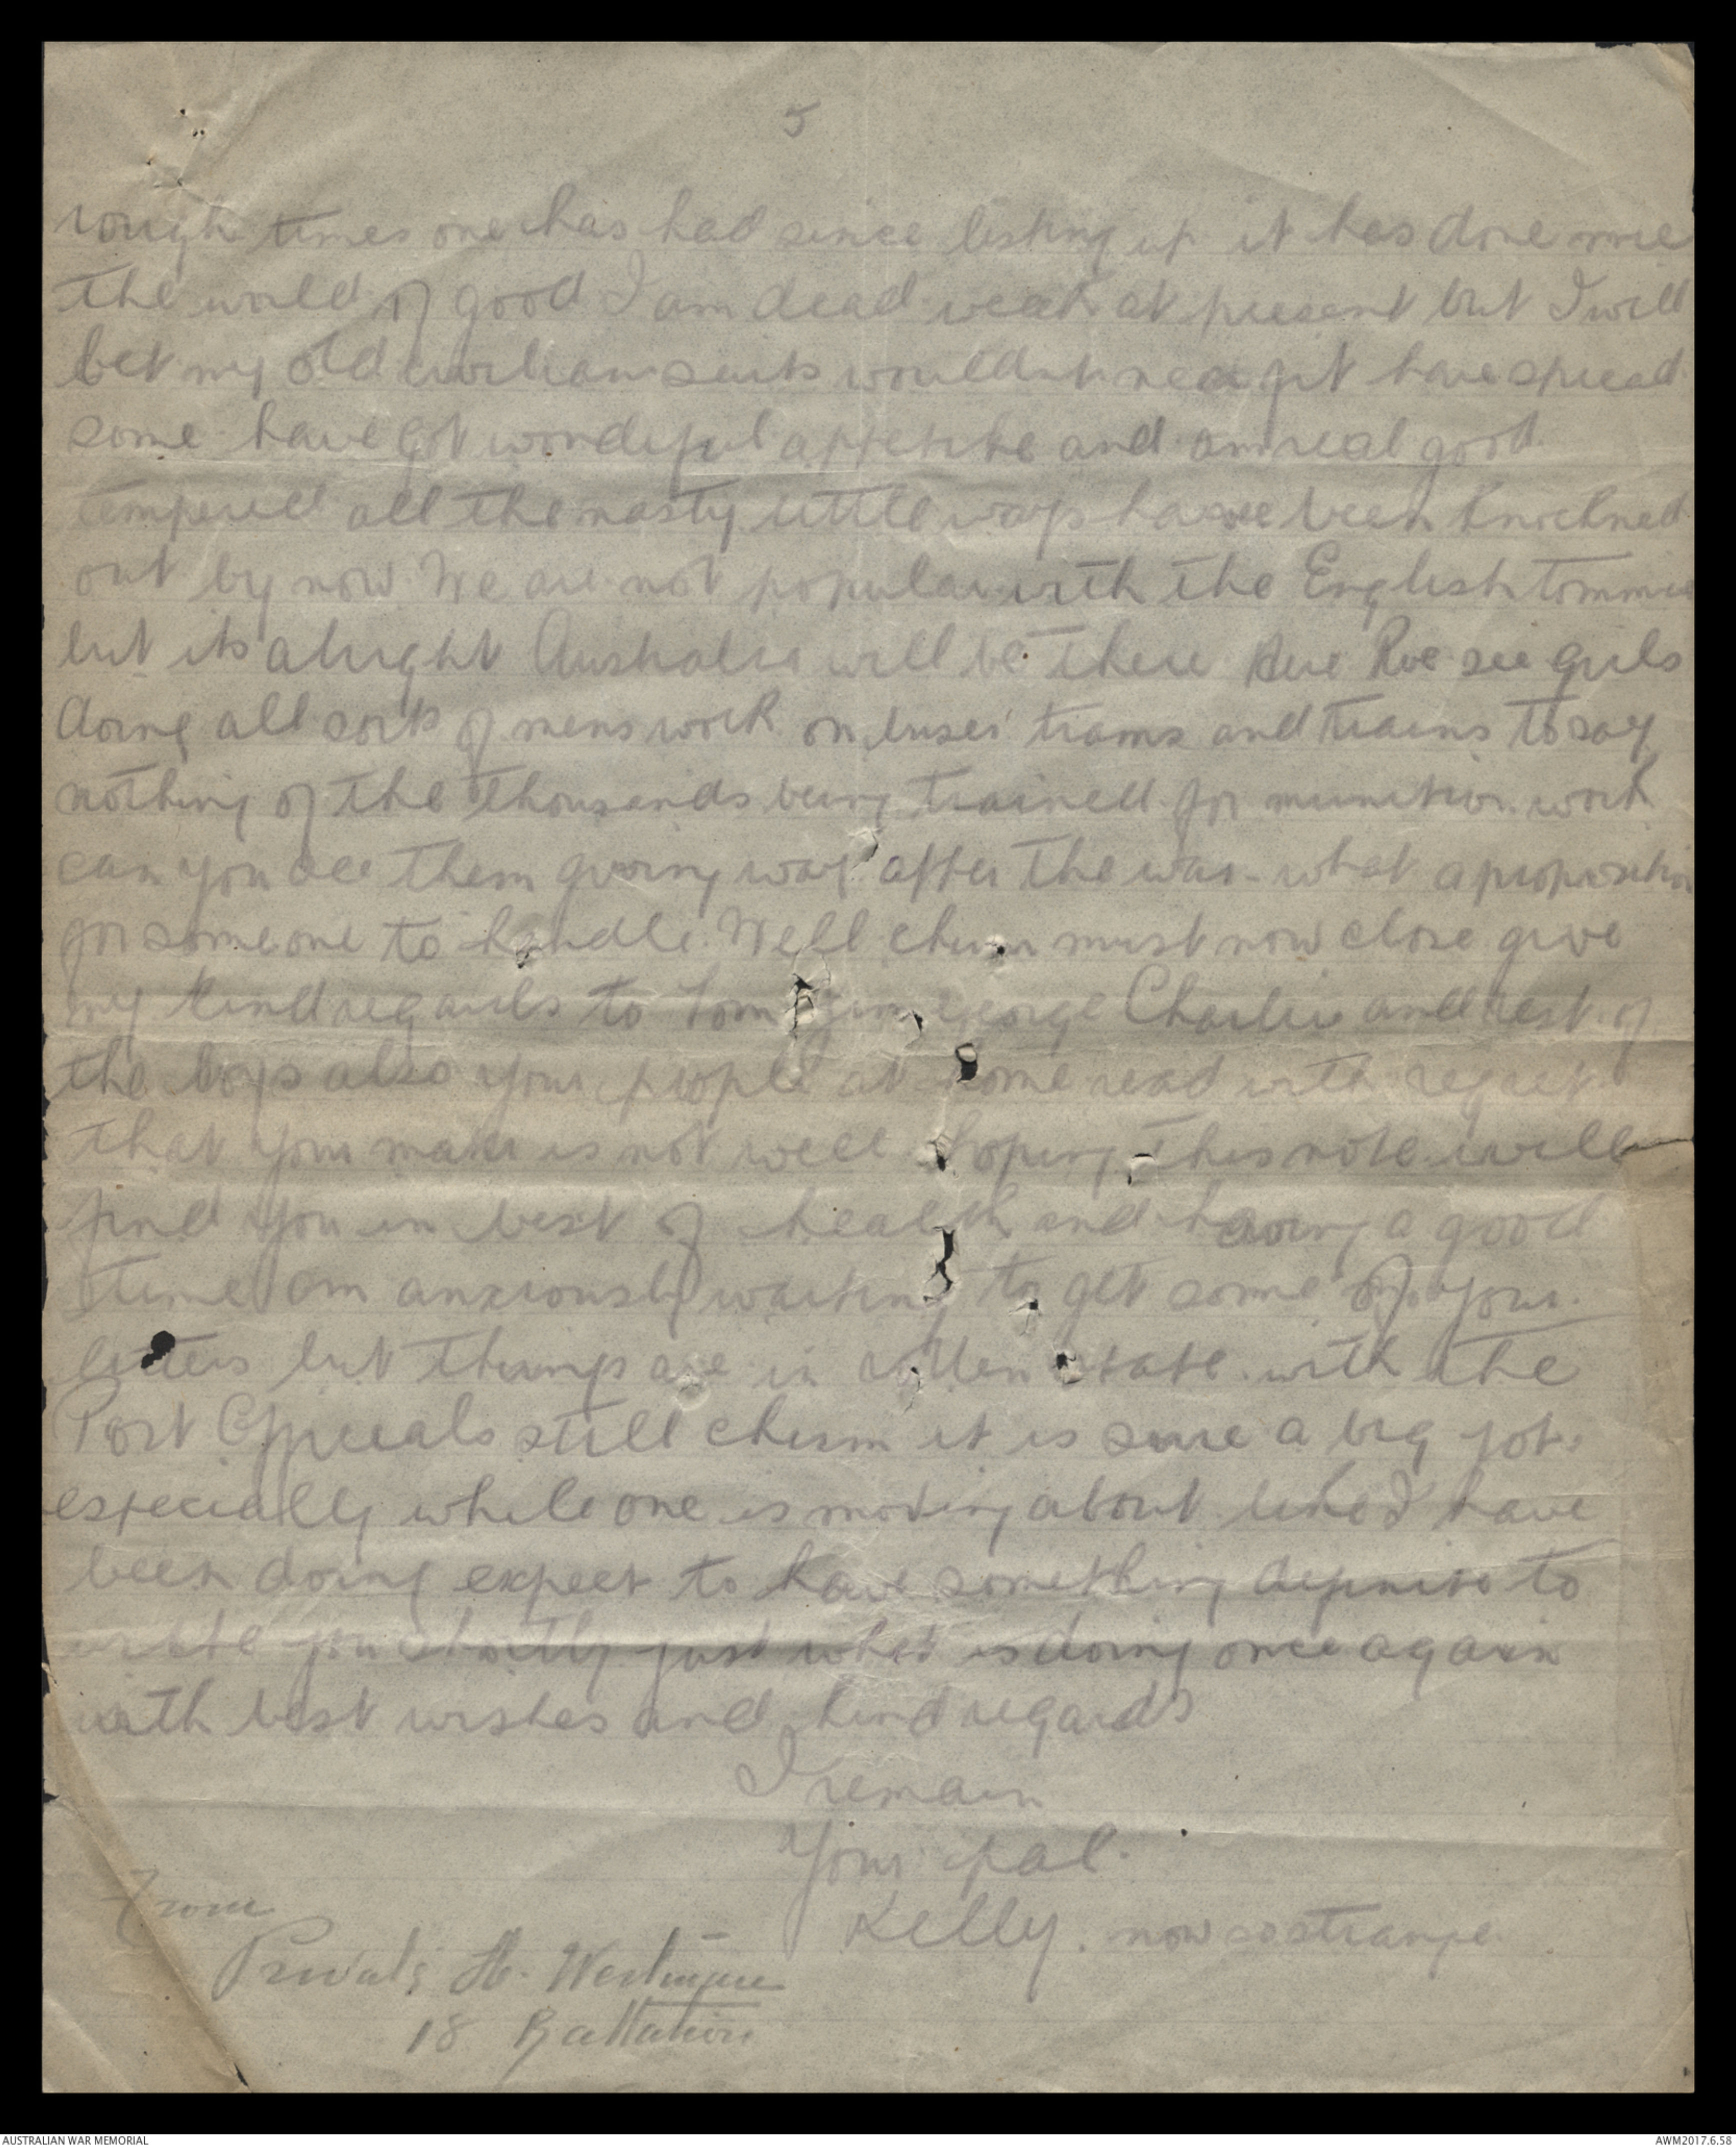 5
rough times one has had since listing up it has done me
the world of good I am dead weak at present but I will
bet my old civilian suits wouldnt near fit have spread
some have got wonderful appetite and am real good
tempered all the nasty little ways have been knocked
out by now. We are not popular with the English tommie
but its alright Australia will be there see girls
doing all sorts of mens work on buses trams and trains to say
nothing of the thousands being trained for munition work
can you see them giving way after the war - what a proposition
for someone to handle. Well chum must now close give
my kind regards to Tom Jim George Charlie and rest of
the boys also your people at home read with regret
that your mater is not well hoping this note will
find you in best of health and having a good
time am anxiously waiting to get some of your
letters but things are in rotten state with the
Post Officeals still chum it is sure a big job
especially while one is moving about like I have
been doing expect to have something definite to
write you shortly just what is doing once again
with best wishes and kind regards
I remain
Your pal.
Kelly. now so strange.
From
Private H.
18 Battalion
AUSTRALIAN WAR MEMORIAL
AWM2017.6.58